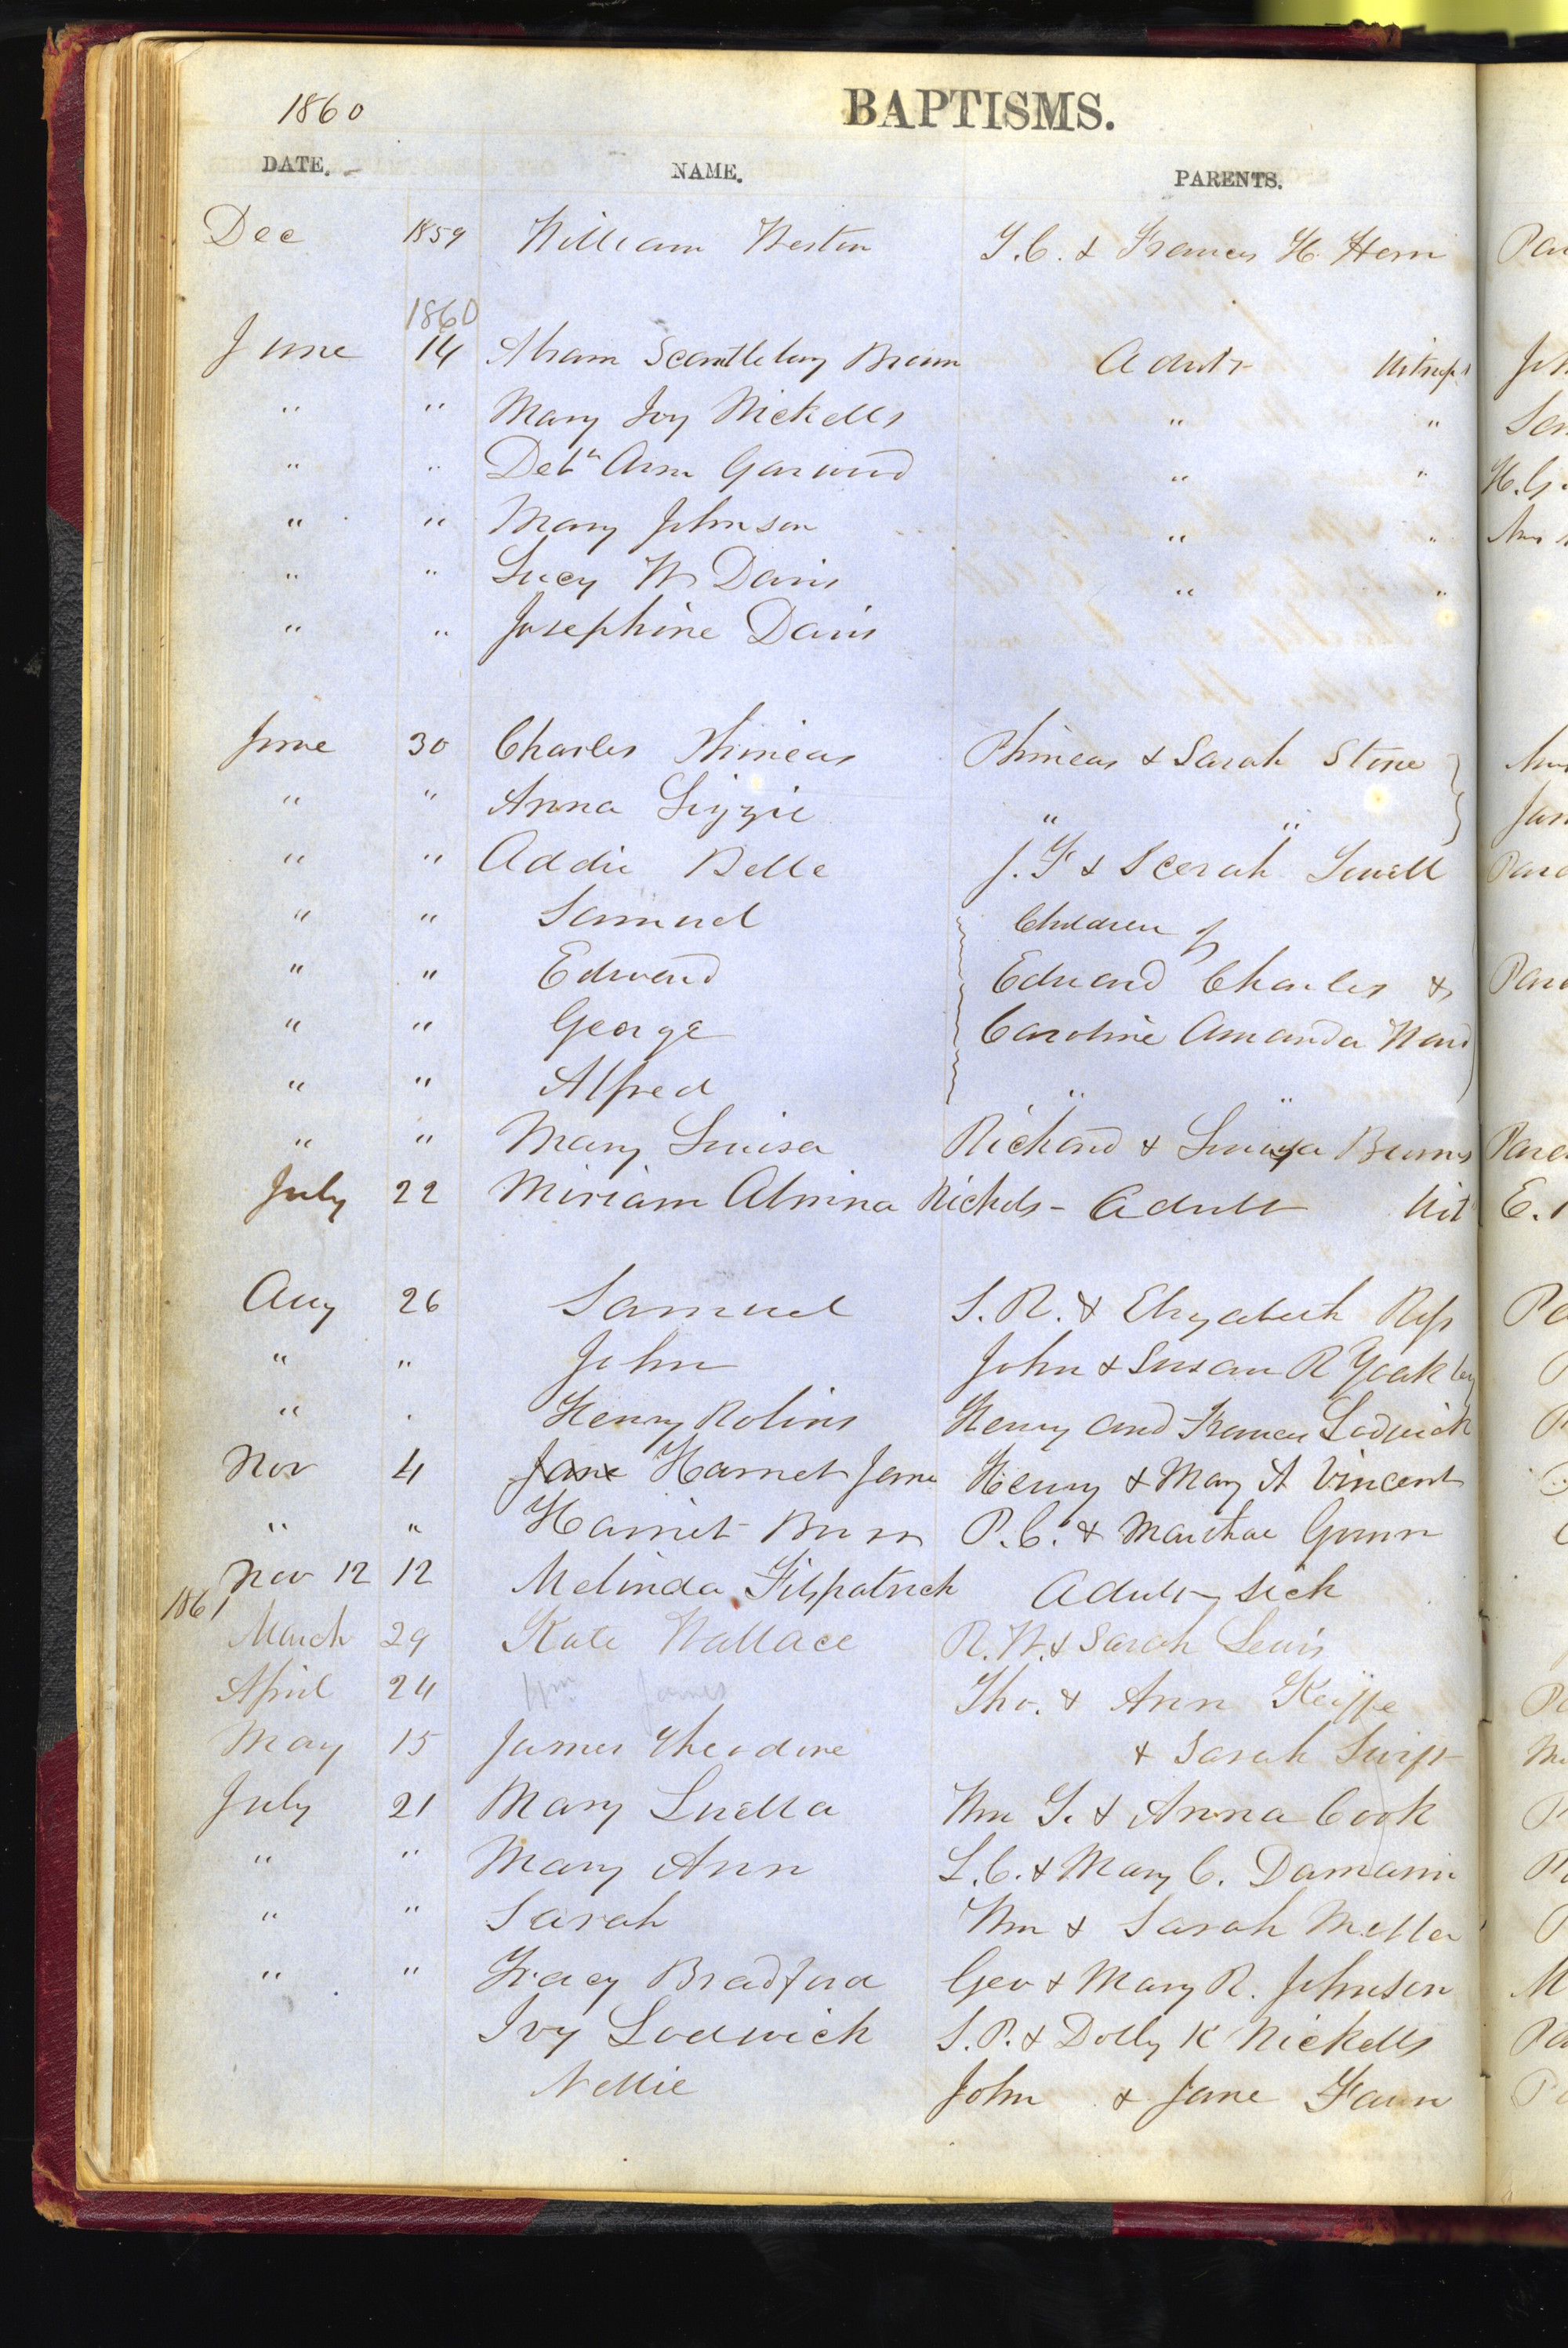 1860
BAPTISMS.
DATE. NAME. PARENTS.
Dec 1859 William Weston T. C. & Frances H. Horn
1860
June 14 Abram Scantlebury Brown Adult Witness
" " Mary Ivy Nickells " "
" " Deb^h Ann Garwood " "
" " Mary Johnson " "
" " Lucy W Davis " "
" " Josephine Davis
June 30 Charles Phineas Phineas & Sarah Stone
" " Anna Lizzie " "
" " Addie Belle J. F & Sarah Lowell
" " Samuel Children of
" " Edward Edward Charles &
" " George Caroline Amanda Ward
" " Alfred " "
" " Mary Louisa Richard & Louisa Burns
July 22 Miriam Almina Nickels - Adult Wit
Aug 26 Samuel S. R. & Elizabeth
" " John John & Susan R Yoakley
" . Henry Robins Henry and Frances Lodwick
Nov 4 Jane Harriet Jane Henry & Mary A Vincent
" " Harriet Bunn P. C. & Martha Gunn
Nov 12 12 Melinda Fitspatrick Adult sick
1861
March 29 Kate Wallace R. W. & Sarah Lewis
April 24 Wm James Tho. & Ann Keiffe
May 15 James Theodore & Sarah Swift
July 21 Mary Luella Wm G. & Anna Cook
" " Mary Ann L. C. & Mary C. Damarin
" " Sarah Wm & Sarah
" " Tracy Bradford Geo & Mary R. Johnson
Ivy Lodwick S. P. & Dolly K Nickells
Nellie John & Jane Fawn